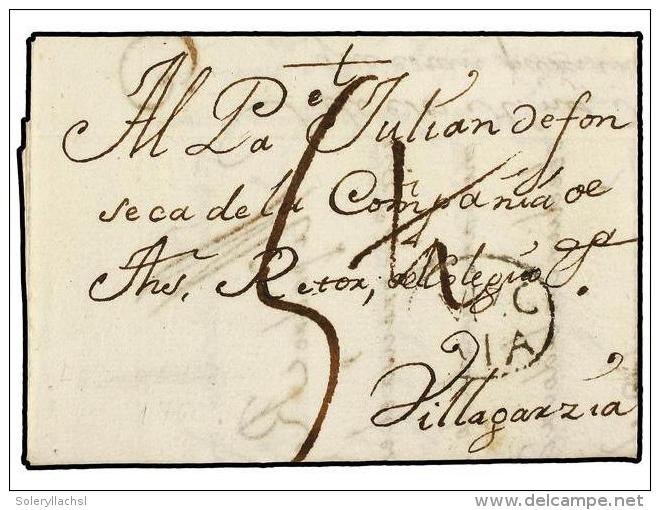 Al Pa^e Julian de fon
seca de la Compañia de
Jhs, Retor, del Colegio de
Villagarzia
C
IA
Soleryllachsl
delcampe.net